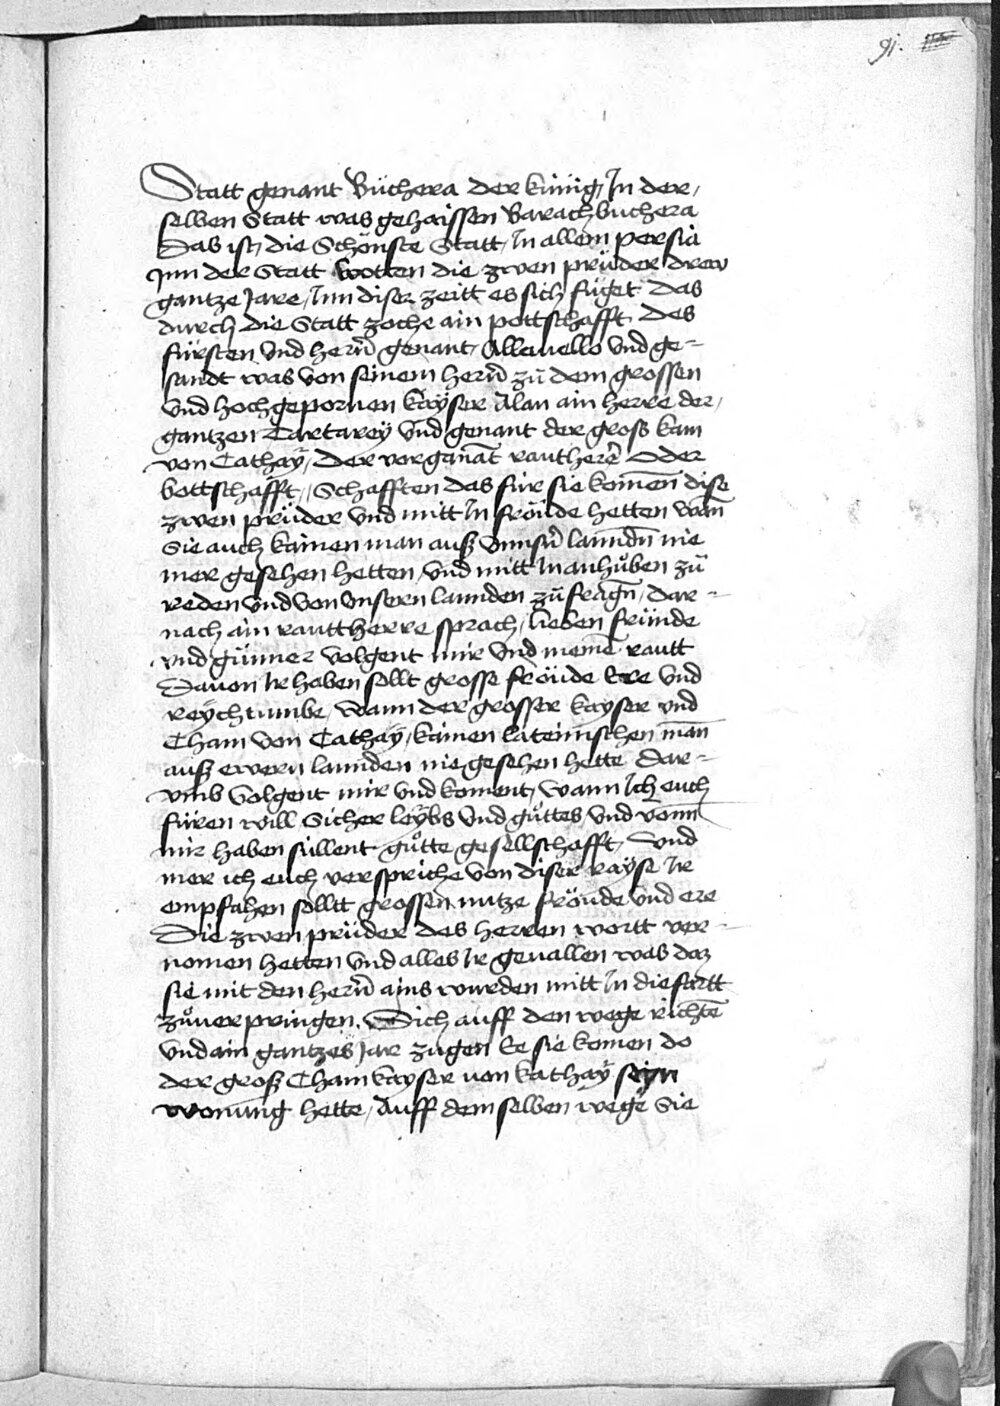 91.
Statt genant Büchera der künig, In der,
selben Statt was gehaissen Barach buchera
Das ist, die Schönste Statt, In allem persia
Inn der Statt wotten die zwen prüder drew
gantze Jare, Inn diser zeitt es sich füget das
durch die Statt zoche ain pottschafft, des
fürsten vnd herñ genant, Allauello vnd ge-
sandt was von seinem herñ zu dem grossen
vnd hochgepornen kayser Alan ain herre der,
gantzen Tartareÿ vnd genant der gross kam
von Cathaÿ, der vorgenãt rautherẽ oder
bottschafft, Schafften das für sie komen dise
zwen prüder vnd mitt In fröude hetten wañ
Sie auch kainen man auß vnnsñ lanndñ nie
mer gesehen hetten, vnd mitt In anhůben zů
reden vnd von vnsern lannden zů fragñ, dar-
nach ain rauttherre sprach, lieben fründe
vnd günner volgent mir vnd meinẽ rautt
Dauon Ir haben sollt grosse fröude Ere vnd
reÿchtumbe, wann der grosser kayser vnd
Cham von Cathaÿ, kainen lateinischen man
auß ewern lannden nie gesehen hette dar-
vmb volgent mir vnd koment, wann Ich euch
füren will Sicher leÿbs vnd gůttes vnd vonn
mir haben süllent gůtte gesellschafft, vnd
mer ich euch verspriche von diser raÿse Ir
empfahen solltt grossen nutze fröude vnd ere
Die zwen prüder des herren wortt ver-
nomen hetten vnd alles Ir geuallen was daz
sie mit den herñ ains wurden mitt In die fartt
zůuerpringen. Sich auff den wege richtẽ
vnd ain gantzes Jar zugen Ee sie komen do
der groß Cham kayser von kathaÿ seyn
wonung hette, Auff dem selben wege Sie